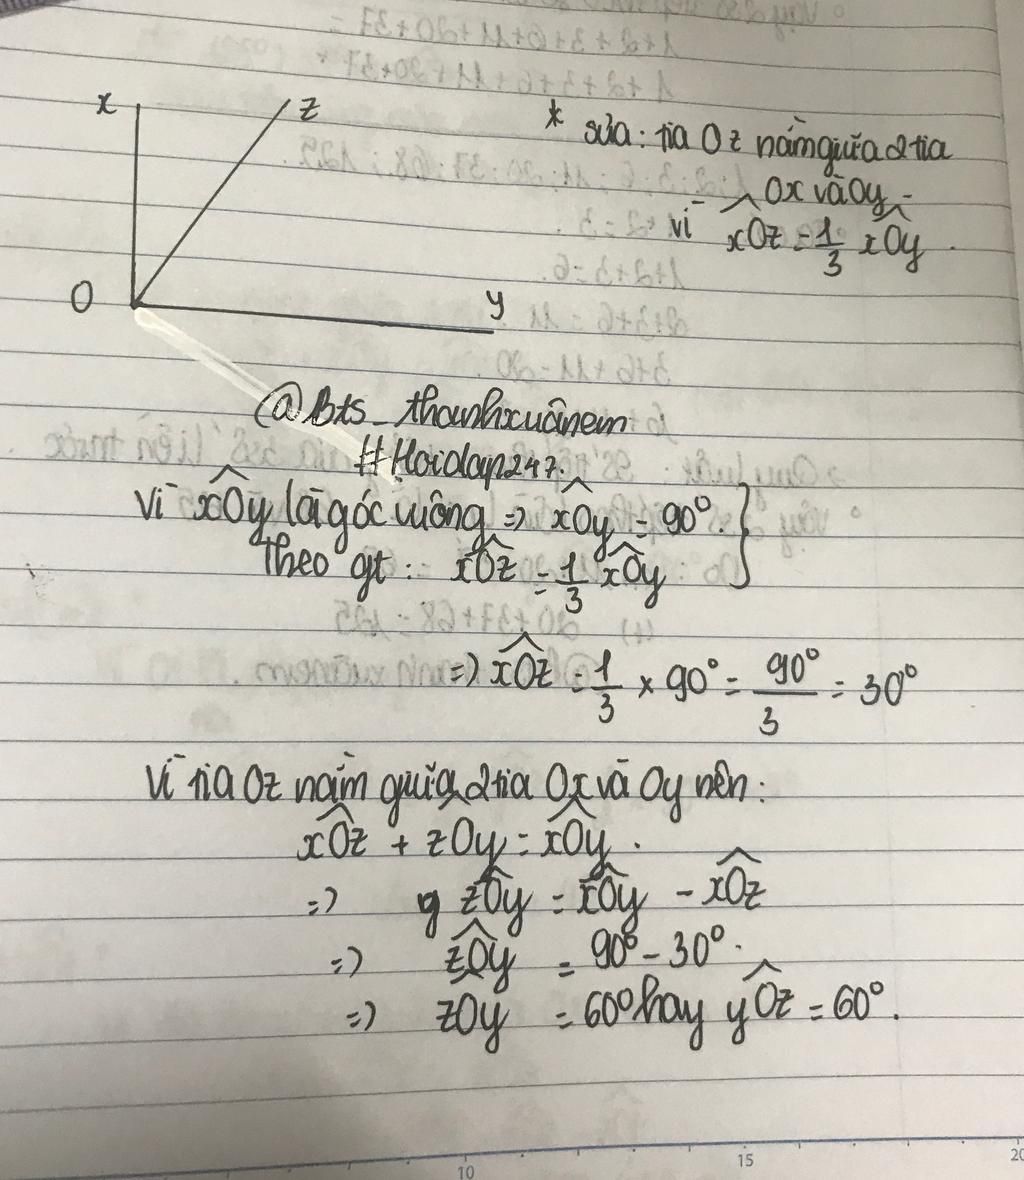 x
z
* sửa: tia Oz nằm giữa 2 tia
Ox và Oy
vì xOz = 1/3 xOy.
O
y
@Bts_thanhxuânem
#Hoidap247.
Vì xOy là góc vuông => xOy = 90°.
Theo gt: xOz = 1/3 xOy
=> xOz = 1/3 × 90° = 90°/3 = 30°
Vì tia Oz nằm giữa 2 tia Ox và Oy nên:
xOz + zOy = xOy.
=> zOy = xOy - xOz
=> zOy = 90° - 30°.
=> zOy = 60° hay yOz = 60°.
10
15
20